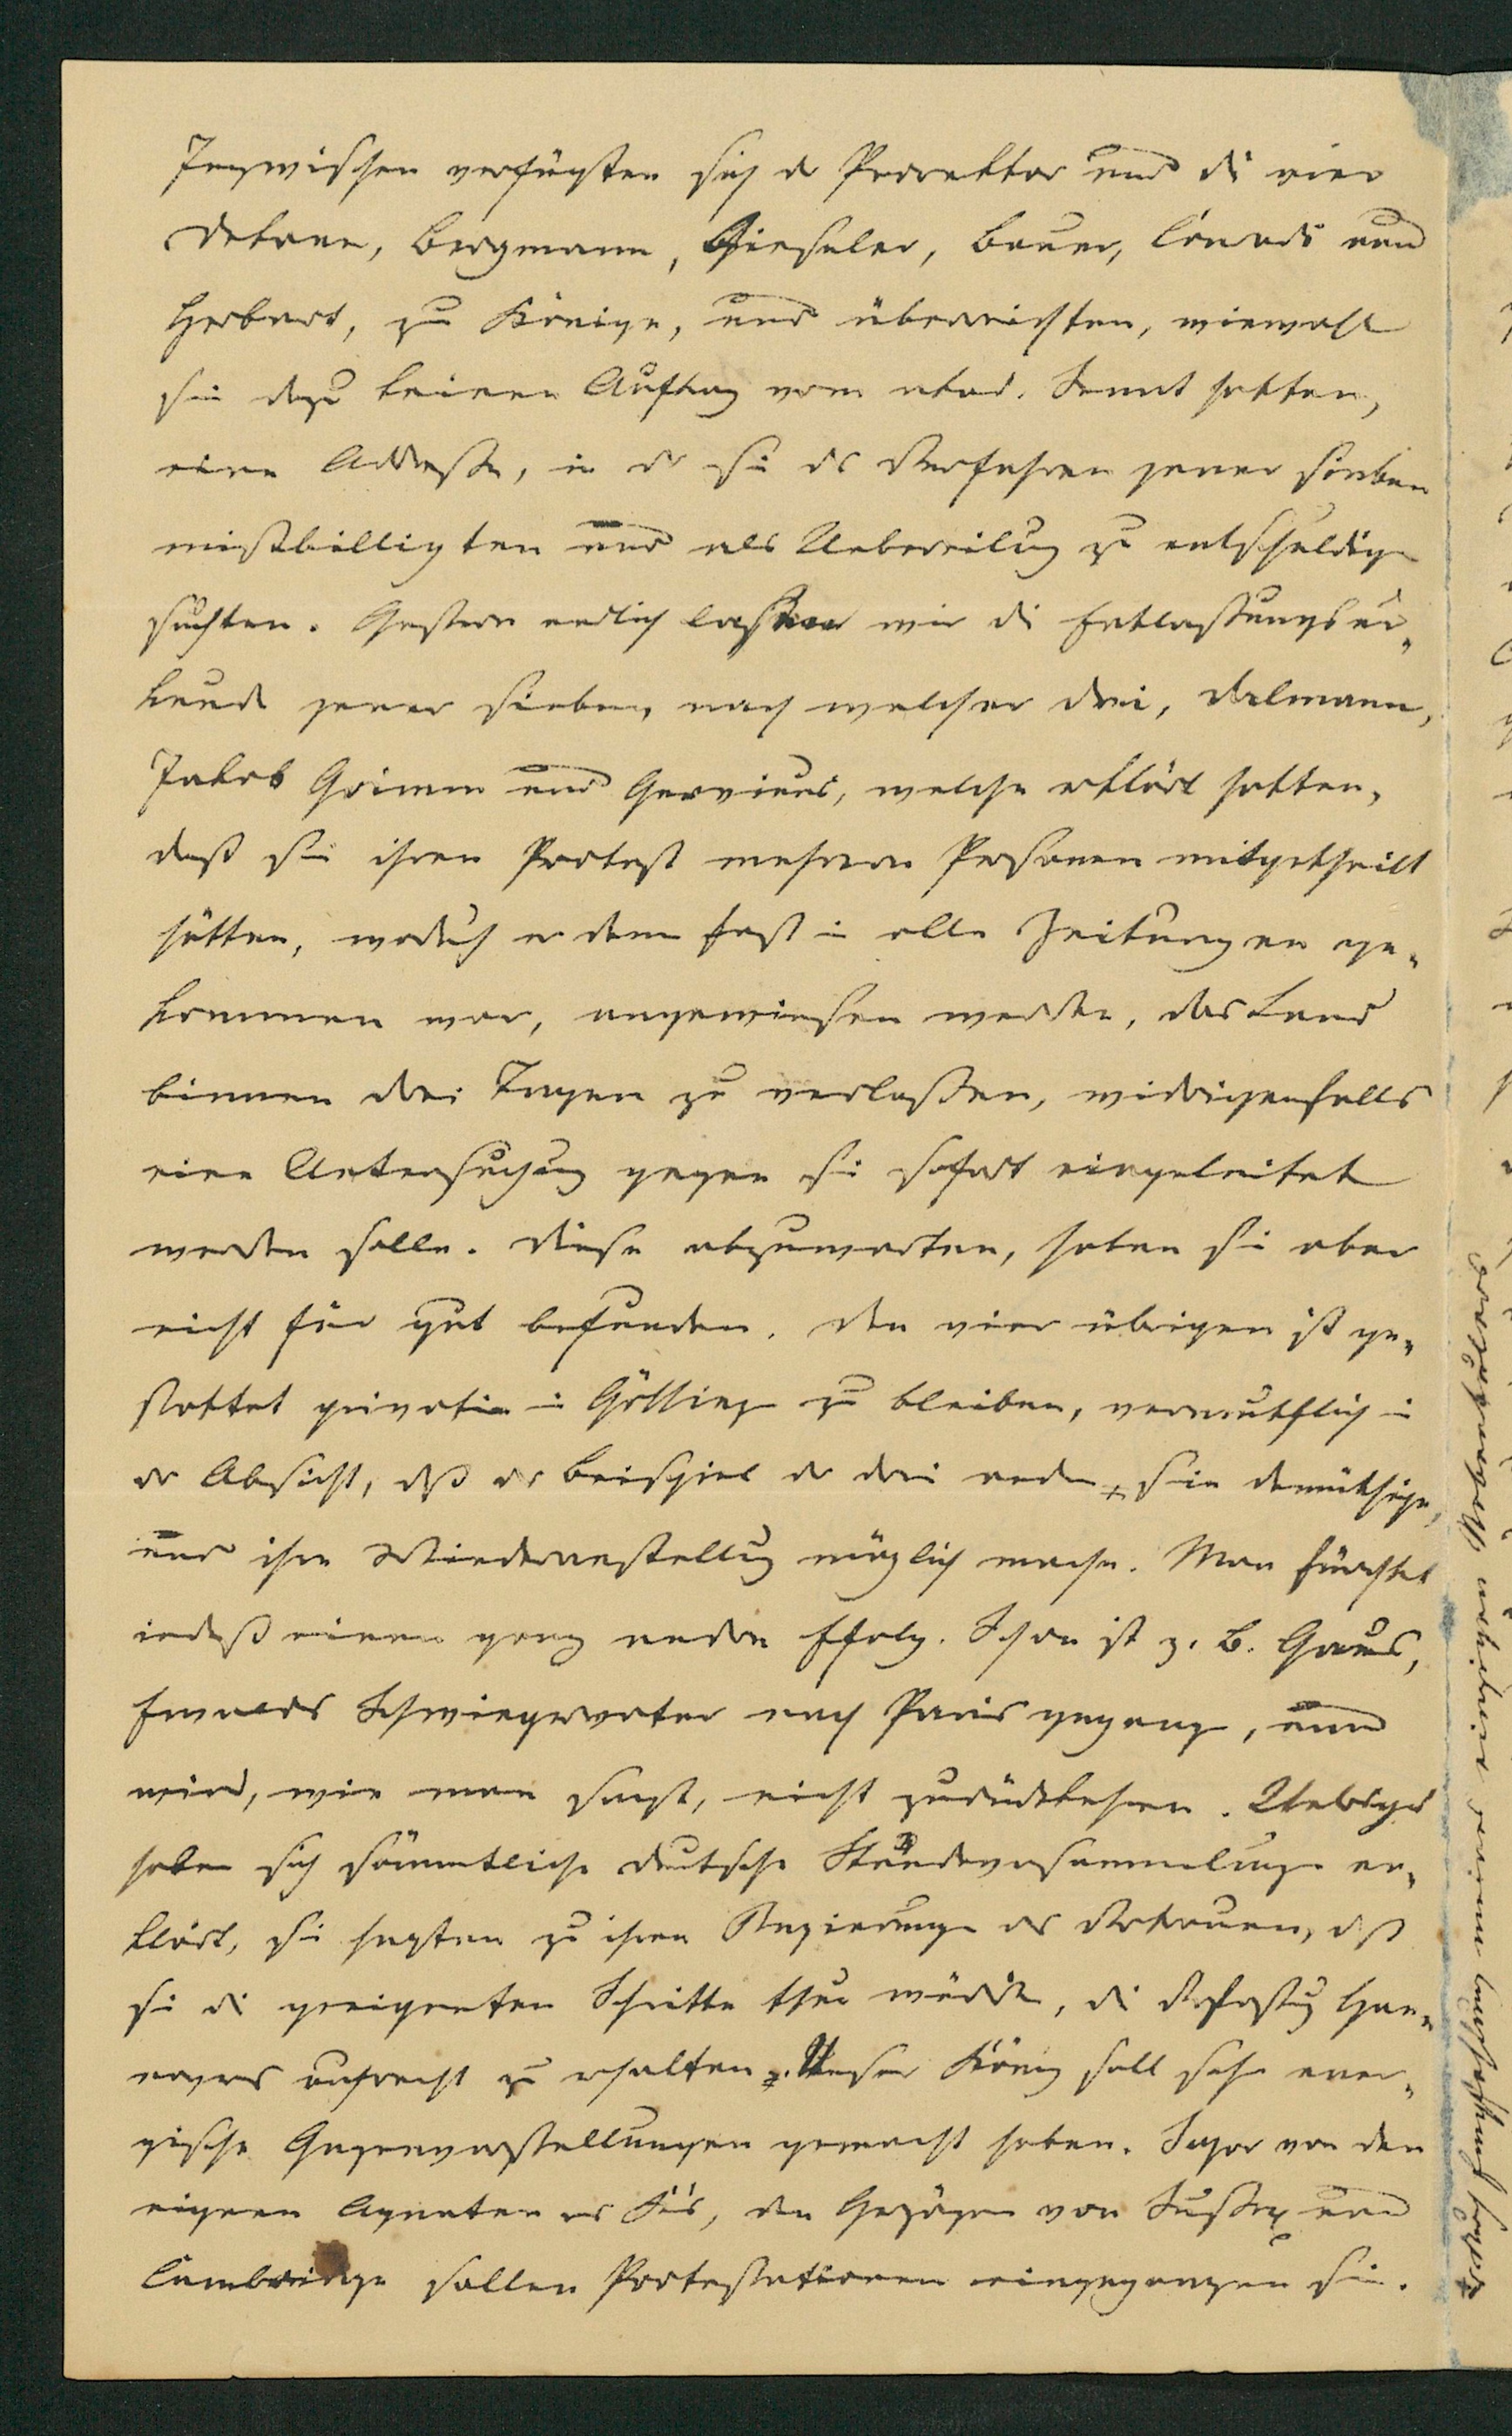 Inzwischen verfügten sich d Prorektor und di vier
Dekane, Bergmann, Gieseler, Bauer, Conradi und
Herbart, zu Könige, und überreichten, wiewohl
sie dazu keinen Auftrag vom akad. Senat hatten,
eine Addresse, in d sie ds Verfahren jener sieben
mißbilligten und als Uebereilung zu entschuldigen
suchten. Gestern endlich lasen wir di Entlassungsur-
kunde jener sieben, nach welcher drei, Dalmann,
Jakob Grimm und Gervinus, welche erklärt hatten,
daß sie ihren Protest mehrern Personen mitgetheilt
hätten, wodurch er denn fast in alle Zeitungen ge-
kommen war, angewiesen werden, das Land
binnen drei Tagen zu verlassen, widrigenfalls
eine Untersuchung gegen sie sofort eingeleitet
werden solle. Diese abzuwarten, haben sie aber
nicht für gut befunden. Den vier übrigen ist ge-
stattet privatim in Götting zu bleiben, vermuthlich in
dr Absicht, dß ds Beispiel dr drei andern sie demüthige,
und ihre Wiederanstellung möglich mache. Man fürchtet
indeß einen ganz andern Erfolg. Schon ist z. B. Gauß,
Ewalds Schwiegervater nach Paris gegang, und
wird, wie man sagt, nicht zurückkehren. Uebrigs
haben sich sämmtliche deutsche Ständeversammlunge er-
klärt, sie hegten zu ihren Regierunge ds Vertrauen, dß
sie di geeigneten Schritte thun würden, di Verfassung Han-
novers aufrecht zu erhalten. Unser König soll sehr ener-
gische Gegenvorstellungen gemacht haben. Sogar von den
eignen Agnaten ds Kö's, den Herzögen von Sussex und
Cambridge sollen Protestationen eingegangen sein.